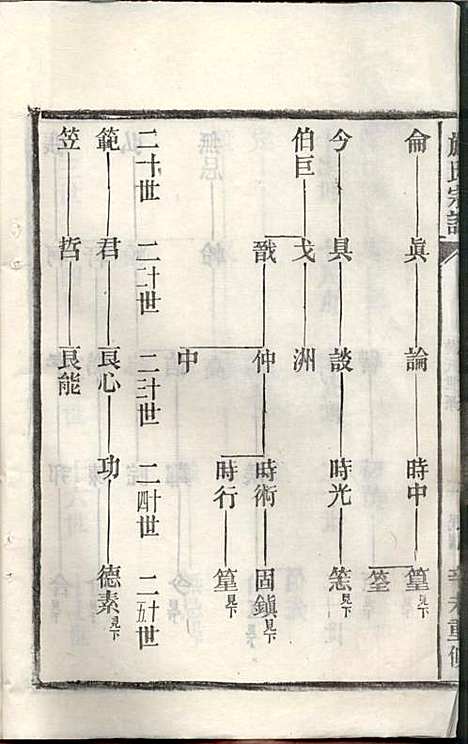 氏宗譜
侖 眞 論 時中 篁見下
簹
今 具 談 時光 見下
伯巨 戈 洲
戩 仲 時術 固鎮見下
時行 篁見下
中
二十世 二十一世 二十二世 二十三世 二十四世 二十五世
範 君 良心 功 德素見下
笠 哲 良能
重修